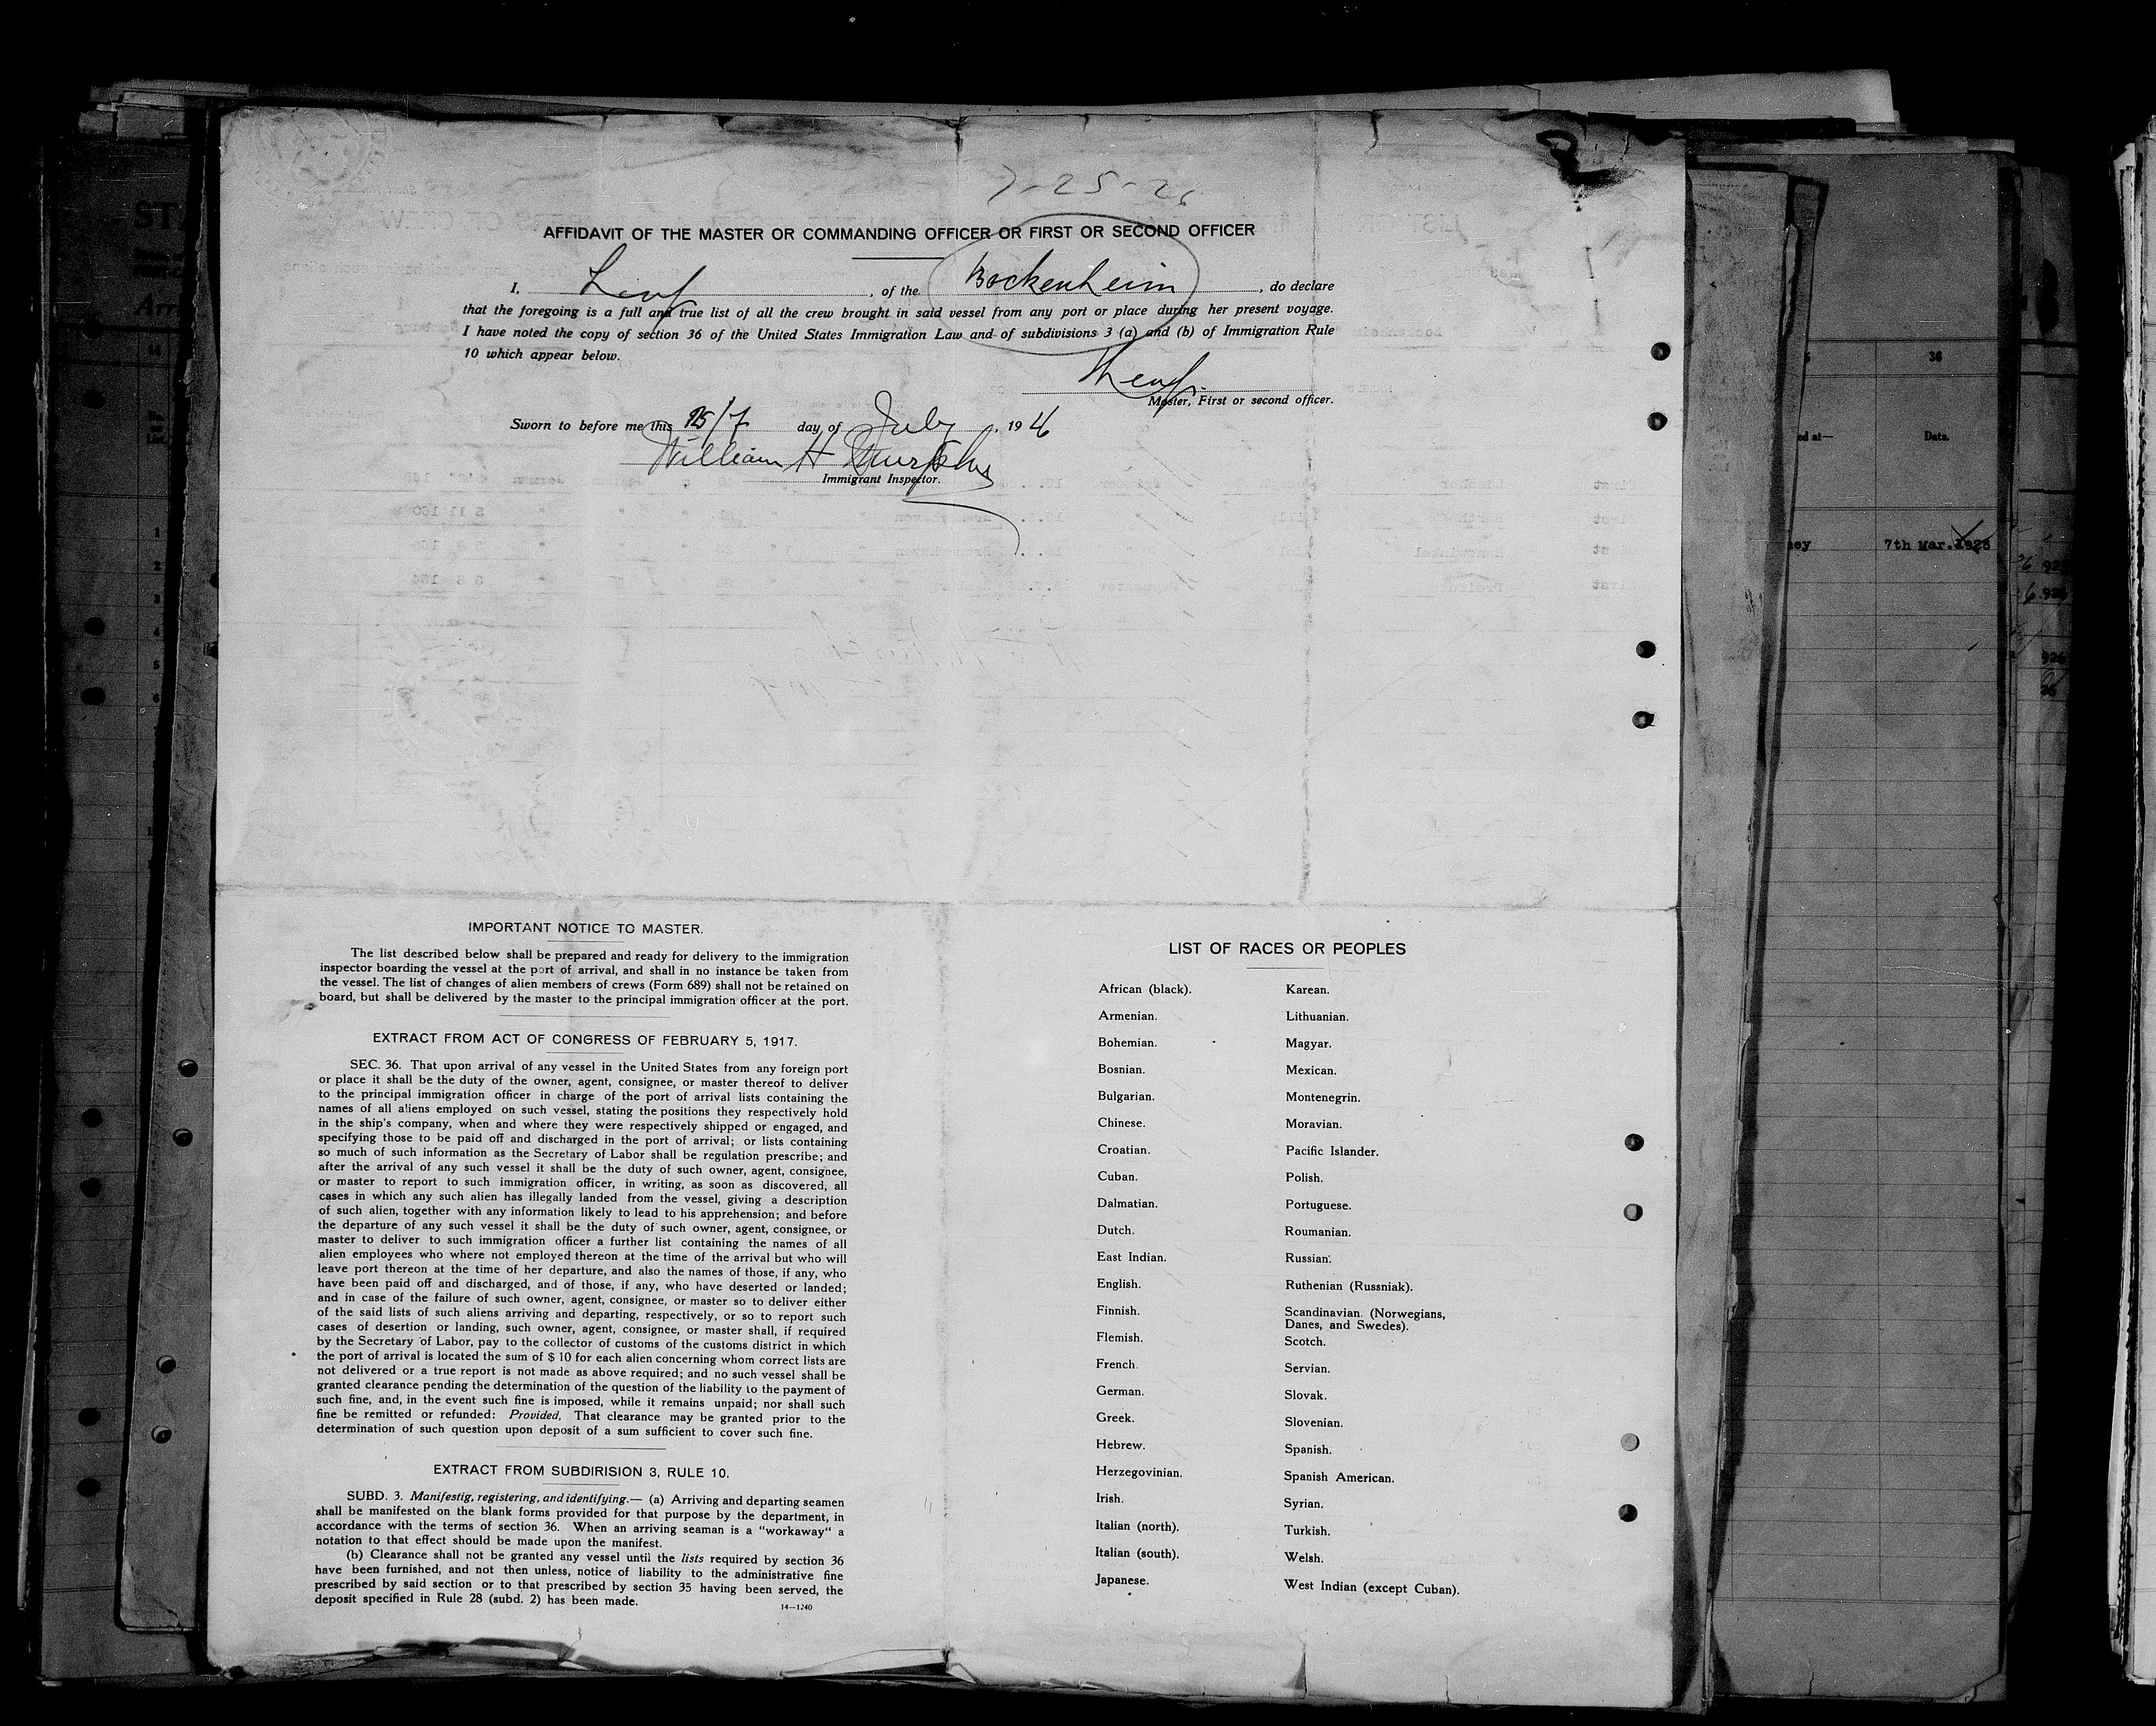 7-25-26
AFFIDAVIT OF THE MASTER OR COMMANDING OFFICER OR FIRST OR SECOND OFFICER
I, , of the Bockenheim, do declare
that the foregoing is a full and true list of all the crew brought in said vessel from any port or place during her present voyage.
I have noted the copy of section 36 of the United States Immigration Law and of subdivisions 3 (a) and (b) of Immigration Rule
10 which appear below.
Master, First or second officer.
Sworn to before me this 25/7 day of July, 1926
William H Murphy
Immigrant Inspector.
36
ed at—
Date.
7th Mar. 1926
IMPORTANT NOTICE TO MASTER.
The list described below shall be prepared and ready for delivery to the immigration
inspector boarding the vessel at the port of arrival, and shall in no instance be taken from
the vessel. The list of changes of alien members of crews (Form 689) shall not be retained on
board, but shall be delivered by the master to the principal immigration officer at the port.
EXTRACT FROM ACT OF CONGRESS OF FEBRUARY 5, 1917.
SEC. 36. That upon arrival of any vessel in the United States from any foreign port
or place it shall be the duty of the owner, agent, consignee, or master thereof to deliver
to the principal immigration officer in charge of the port of arrival lists containing the
names of all aliens employed on such vessel, stating the positions they respectively hold
in the ship's company, when and where they were respectively shipped or engaged, and
specifying those to be paid off and discharged in the port of arrival; or lists containing
so much of such information as the Secretary of Labor shall be regulation prescribe; and
after the arrival of any such vessel it shall be the duty of such owner, agent, consignee,
or master to report to such immigration officer, in writing, as soon as discovered, all
cases in which any such alien has illegally landed from the vessel, giving a description
of such alien, together with any information likely to lead to his apprehension; and before
the departure of any such vessel it shall be the duty of such owner, agent, consignee, or
master to deliver to such immigration officer a further list containing the names of all
alien employees who where not employed thereon at the time of the arrival but who will
leave port thereon at the time of her departure, and also the names of those, if any, who
have been paid off and discharged, and of those, if any, who have deserted or landed;
and in case of the failure of such owner, agent, consignee, or master so to deliver either
of the said lists of such aliens arriving and departing, respectively, or so to report such
cases of desertion or landing, such owner, agent, consignee, or master shall, if required
by the Secretary of Labor, pay to the collector of customs of the customs district in which
the port of arrival is located the sum of $ 10 for each alien concerning whom correct lists are
not delivered or a true report is not made as above required; and no such vessel shall be
granted clearance pending the determination of the question of the liability to the payment of
such fine, and, in the event such fine is imposed, while it remains unpaid; nor shall such
fine be remitted or refunded: Provided, That clearance may be granted prior to the
determination of such question upon deposit of a sum sufficient to cover such fine.
EXTRACT FROM SUBDIRISION 3, RULE 10.
SUBD. 3. Manifestig, registering, and identifying.— (a) Arriving and departing seamen
shall be manifested on the blank forms provided for that purpose by the department, in
accordance with the terms of section 36. When an arriving seaman is a "workaway" a
notation to that effect should be made upon the manifest.
(b) Clearance shall not be granted any vessel until the lists required by section 36
have been furnished, and not then unless, notice of liability to the administrative fine
prescribed by said section or to that prescribed by section 35 having been served, the
deposit specified in Rule 28 (subd. 2) has been made.
14—1240
LIST OF RACES OR PEOPLES
African (black).
Armenian.
Bohemian.
Bosnian.
Bulgarian.
Chinese.
Croatian.
Cuban.
Dalmatian.
Dutch.
East Indian.
English.
Finnish.
Flemish.
French.
German.
Greek.
Hebrew.
Herzegovinian.
Irish.
Italian (north).
Italian (south).
Japanese.
Karean.
Lithuanian.
Magyar.
Mexican.
Montenegrin.
Moravian.
Pacific Islander.
Polish.
Portuguese.
Roumanian.
Russian.
Ruthenian (Russniak).
Scandinavian. (Norwegians,
Danes, and Swedes).
Scotch.
Servian.
Slovak.
Slovenian.
Spanish.
Spanish American.
Syrian.
Turkish.
Welsh.
West Indian (except Cuban).